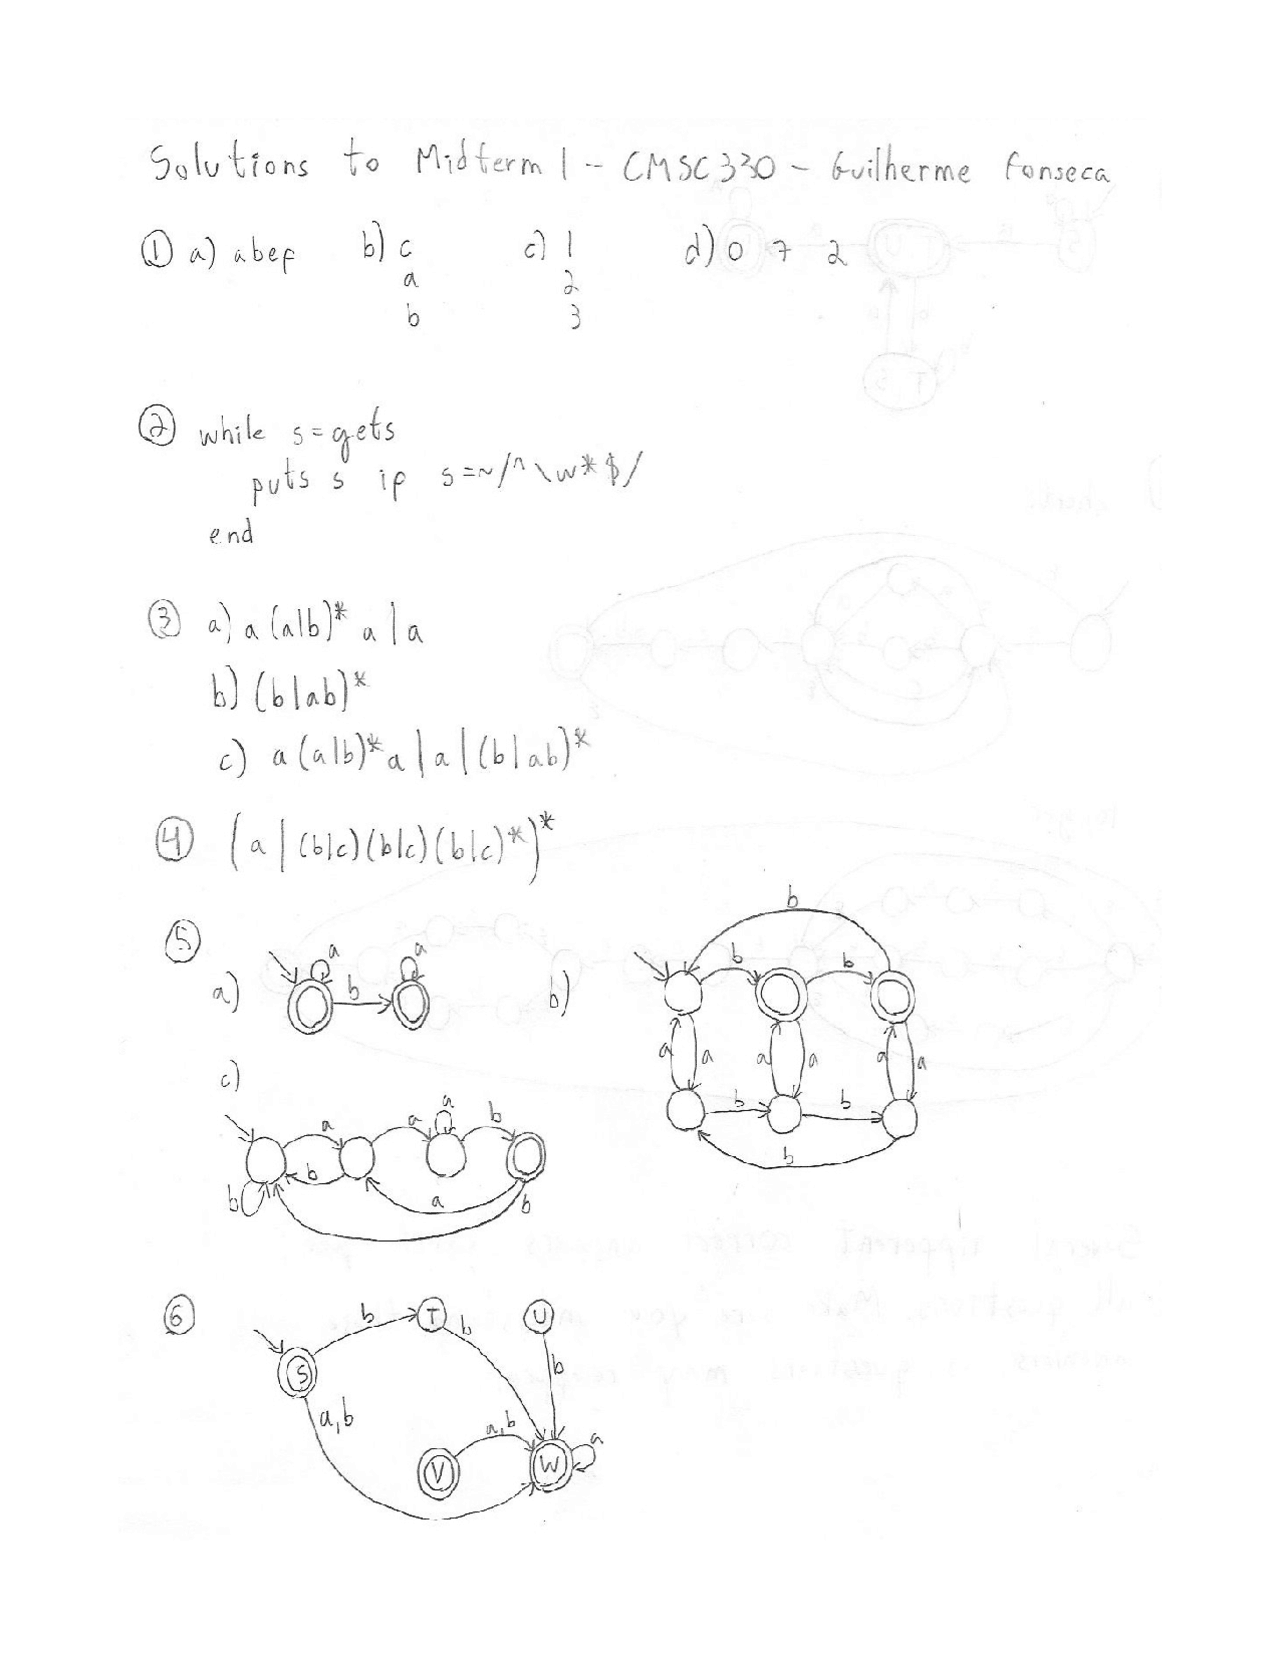 Solutions to Midterm 1 -- CMSC330 - Guilherme Fonseca
① a) abef b) c c) 1 d) 0 7 2
a 2
b 3
② while s=gets
puts s if s=~/^\w*$/
end
③ a) a(a|b)*a|a
b) (b|ab)*
c) a(a|b)*a|a|(b|ab)*
④ (a|(b|c)(b|c)(b|c)*)*
⑤
b
a a b b
a) b b)
a a a a a a
c)
a b b
a a b
b b
b a b
⑥ b T b U
S b
a,b a,b a
V W